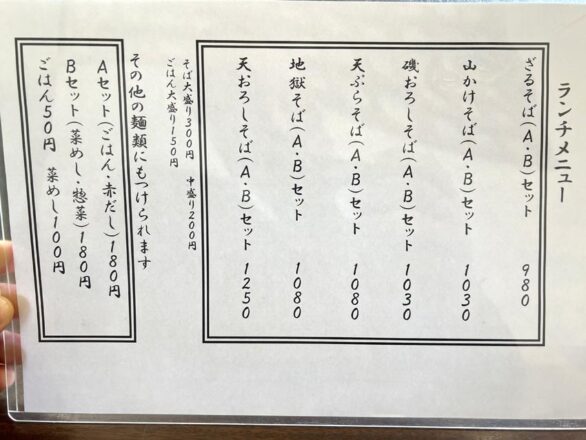 ランチメニュー
ざるそば(A・B)セット 980
山かけそば(A・B)セット 1030
磯おろしそば(A・B)セット 1030
天ぷらそば(A・B)セット 1080
地獄そば(A・B)セット 1080
天おろしそば(A・B)セット 1250
そば大盛り300円 中盛り200円
ごはん大盛り150円
その他の麺類にもつけられます
Aセット(ごはん・赤だし)180円
Bセット(菜めし・惣菜)180円
ごはん50円 菜めし100円